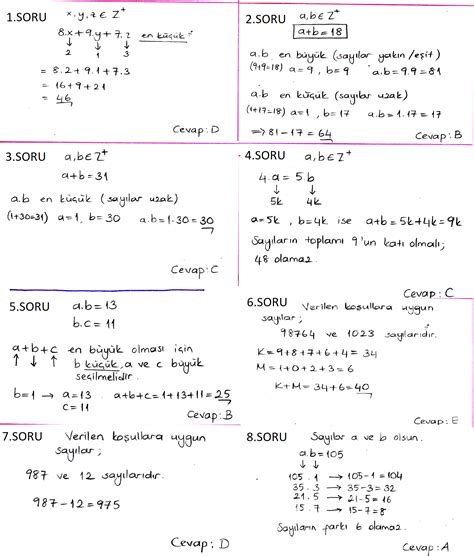 1.SORU x,y,z ∈ Z⁺
8.x + 9.y + 7.z en küçük
↓ ↓ ↓
2 1 3
= 8.2 + 9.1 + 7.3
= 16 + 9 + 21
= 46
Cevap: D
2.SORU a,b ∈ Z⁺
a+b = 18
a.b en büyük (sayılar yakın/eşit)
(9+9=18) a = 9, b = 9 a.b = 9.9 = 81
a.b en küçük (sayılar uzak)
(1+17=18) a = 1, b = 17 a.b = 1.17 = 17
⇒ 81 - 17 = 64
Cevap: B
3.SORU a,b ∈ Z⁺
a+b = 31
a.b en küçük (sayılar uzak)
(1+30=31) a=1, b=30 a.b = 1.30 = 30
Cevap: C
4.SORU a,b ∈ Z⁺
4.a = 5.b
↓ ↓
5k 4k
a=5k, b=4k ise a+b = 5k+4k = 9k
Sayıların toplamı 9'un katı olmalı;
48 olamaz.
Cevap: C
5.SORU a.b = 13
b.c = 11
a+b+c en büyük olması için
↑ ↓ ↑ b küçük, a ve c büyük
seçilmelidir.
b=1 → a=13 a+b+c = 1+13+11 = 25
c = 11
Cevap: B
6.SORU Verilen koşullara uygun
sayılar;
98764 ve 1023 sayılarıdır.
K = 9+8+7+6+4 = 34
M = 1+0+2+3 = 6
K+M = 34+6 = 40
Cevap: E
7.SORU Verilen koşullara uygun
sayılar;
987 ve 12 sayılarıdır.
987 - 12 = 975
Cevap: D
8.SORU Sayılar a ve b olsun.
a.b = 105
↓ ↓
105 . 1 → 105-1 = 104
35 . 3 → 35-3 = 32
21 . 5 → 21-5 = 16
15 . 7 → 15-7 = 8
Sayıların farkı 6 olamaz.
Cevap: A